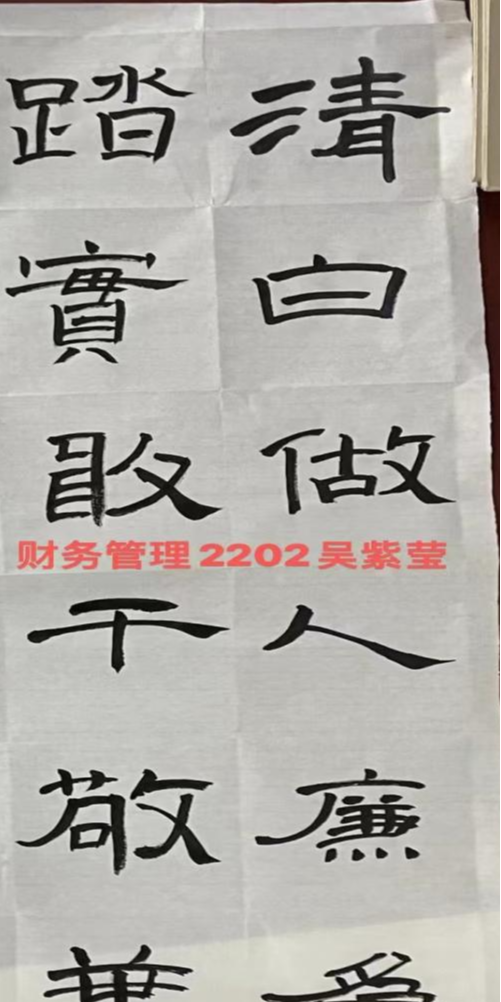 清白做人廉
踏實敢干敬
财务管理2202吴紫莹